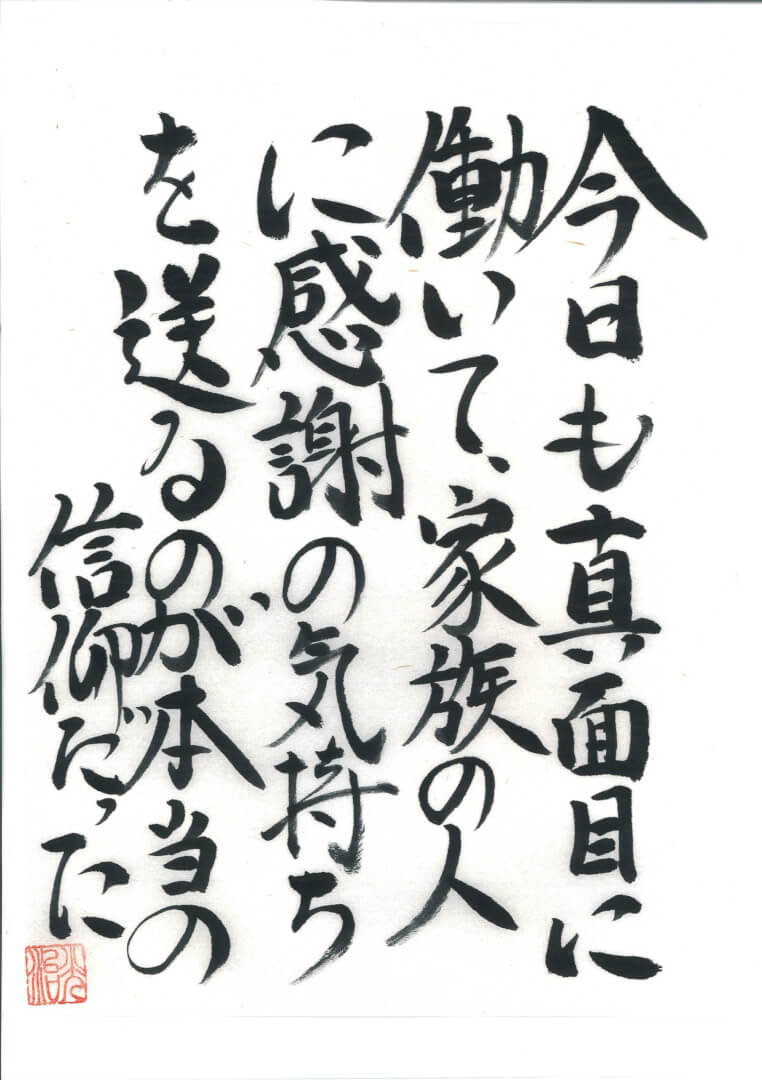 今日も真面目に
働いて、家族の人
に感謝の気持ち
を送るのが本当の
信仰だった